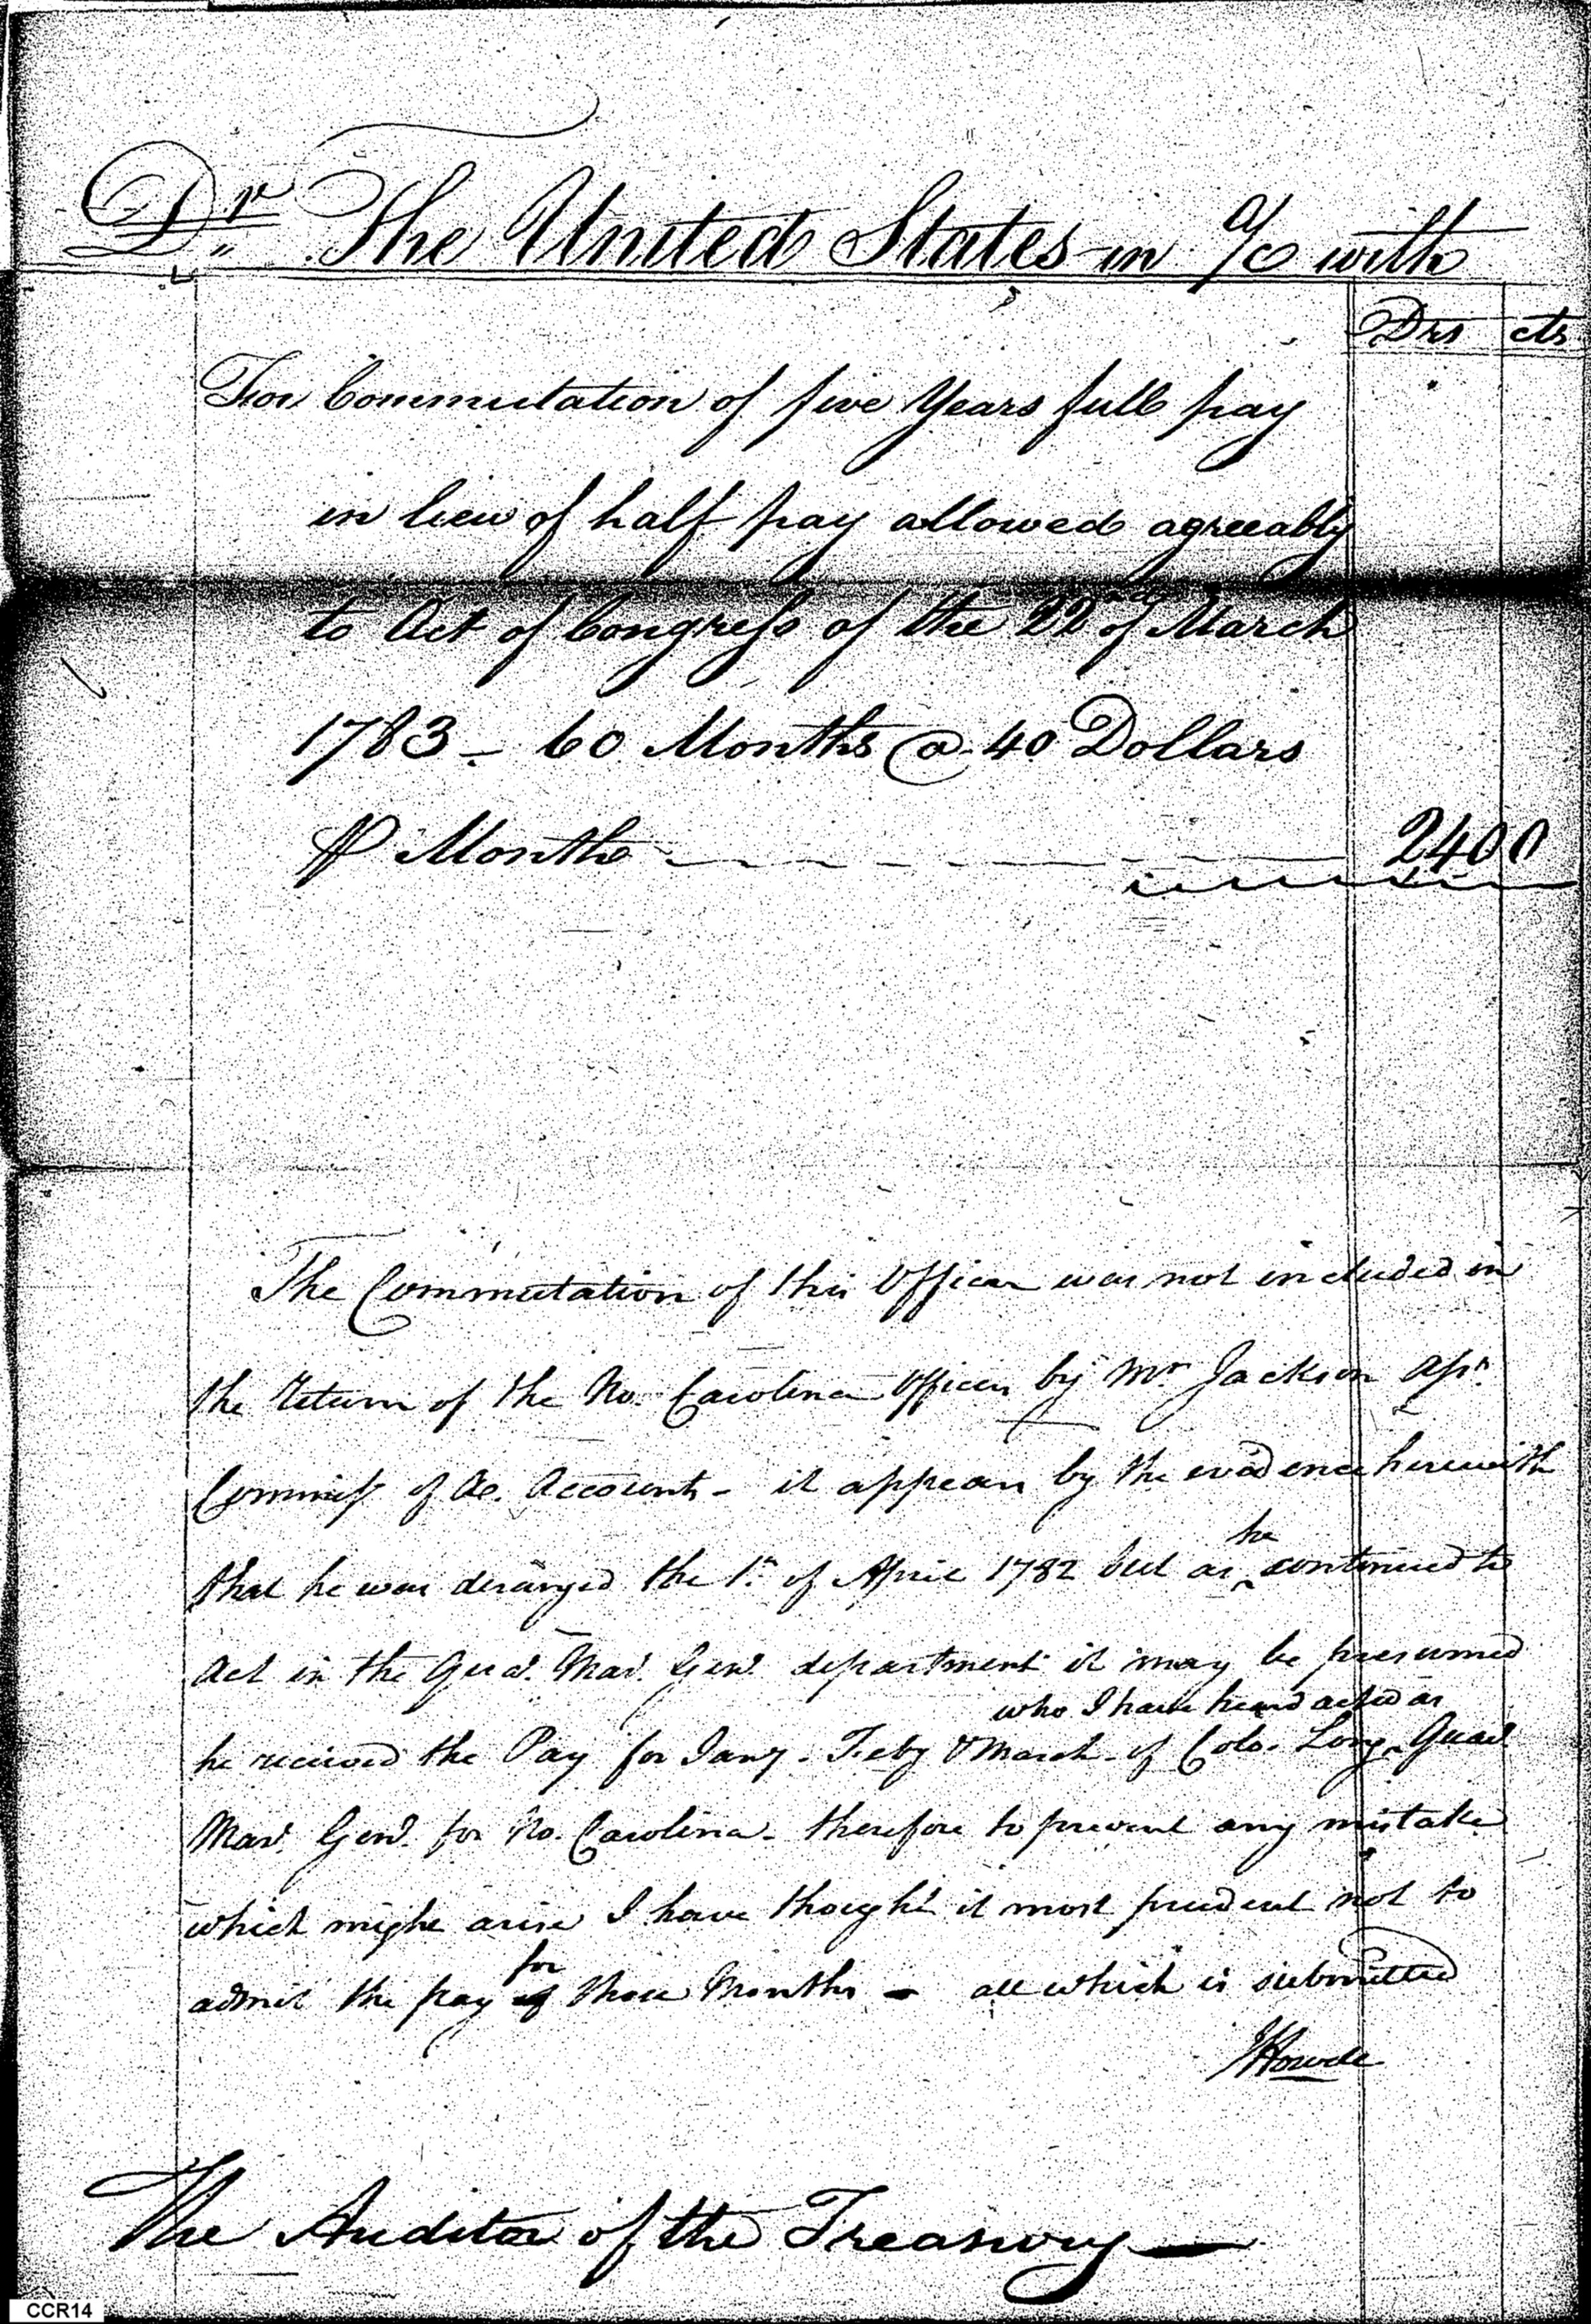 Dr The United States in a/c with
Drs cts
For Commutation of five Years full pay
in lieu of half pay allowed agreeably
to Act of Congress of the 22d of March
1783 - 60 Months @ 40 Dollars
⅌ Month 2400
The Commutation of this Officer was not included in
the return of the No. Carolina Officers by Mr Jackson assr
Commisr of Ac. Accounts - it appears by the evidence herewith
he
that he was deranged the 1st of April 1782 but as continued to
act in the Quar. Mar. Genl. department it may be presumed
who I have heard acted as
he received the Pay for Jany. Feby & March of Colo. Long Quar.
Mar. Genl. for No. Carolina - therefore to prevent any mistake
which might arise I have thought it most prudent not to
for
admit the pay of those Months - all which is submitted
JHowell
The Auditor of the Treasury
CCR14